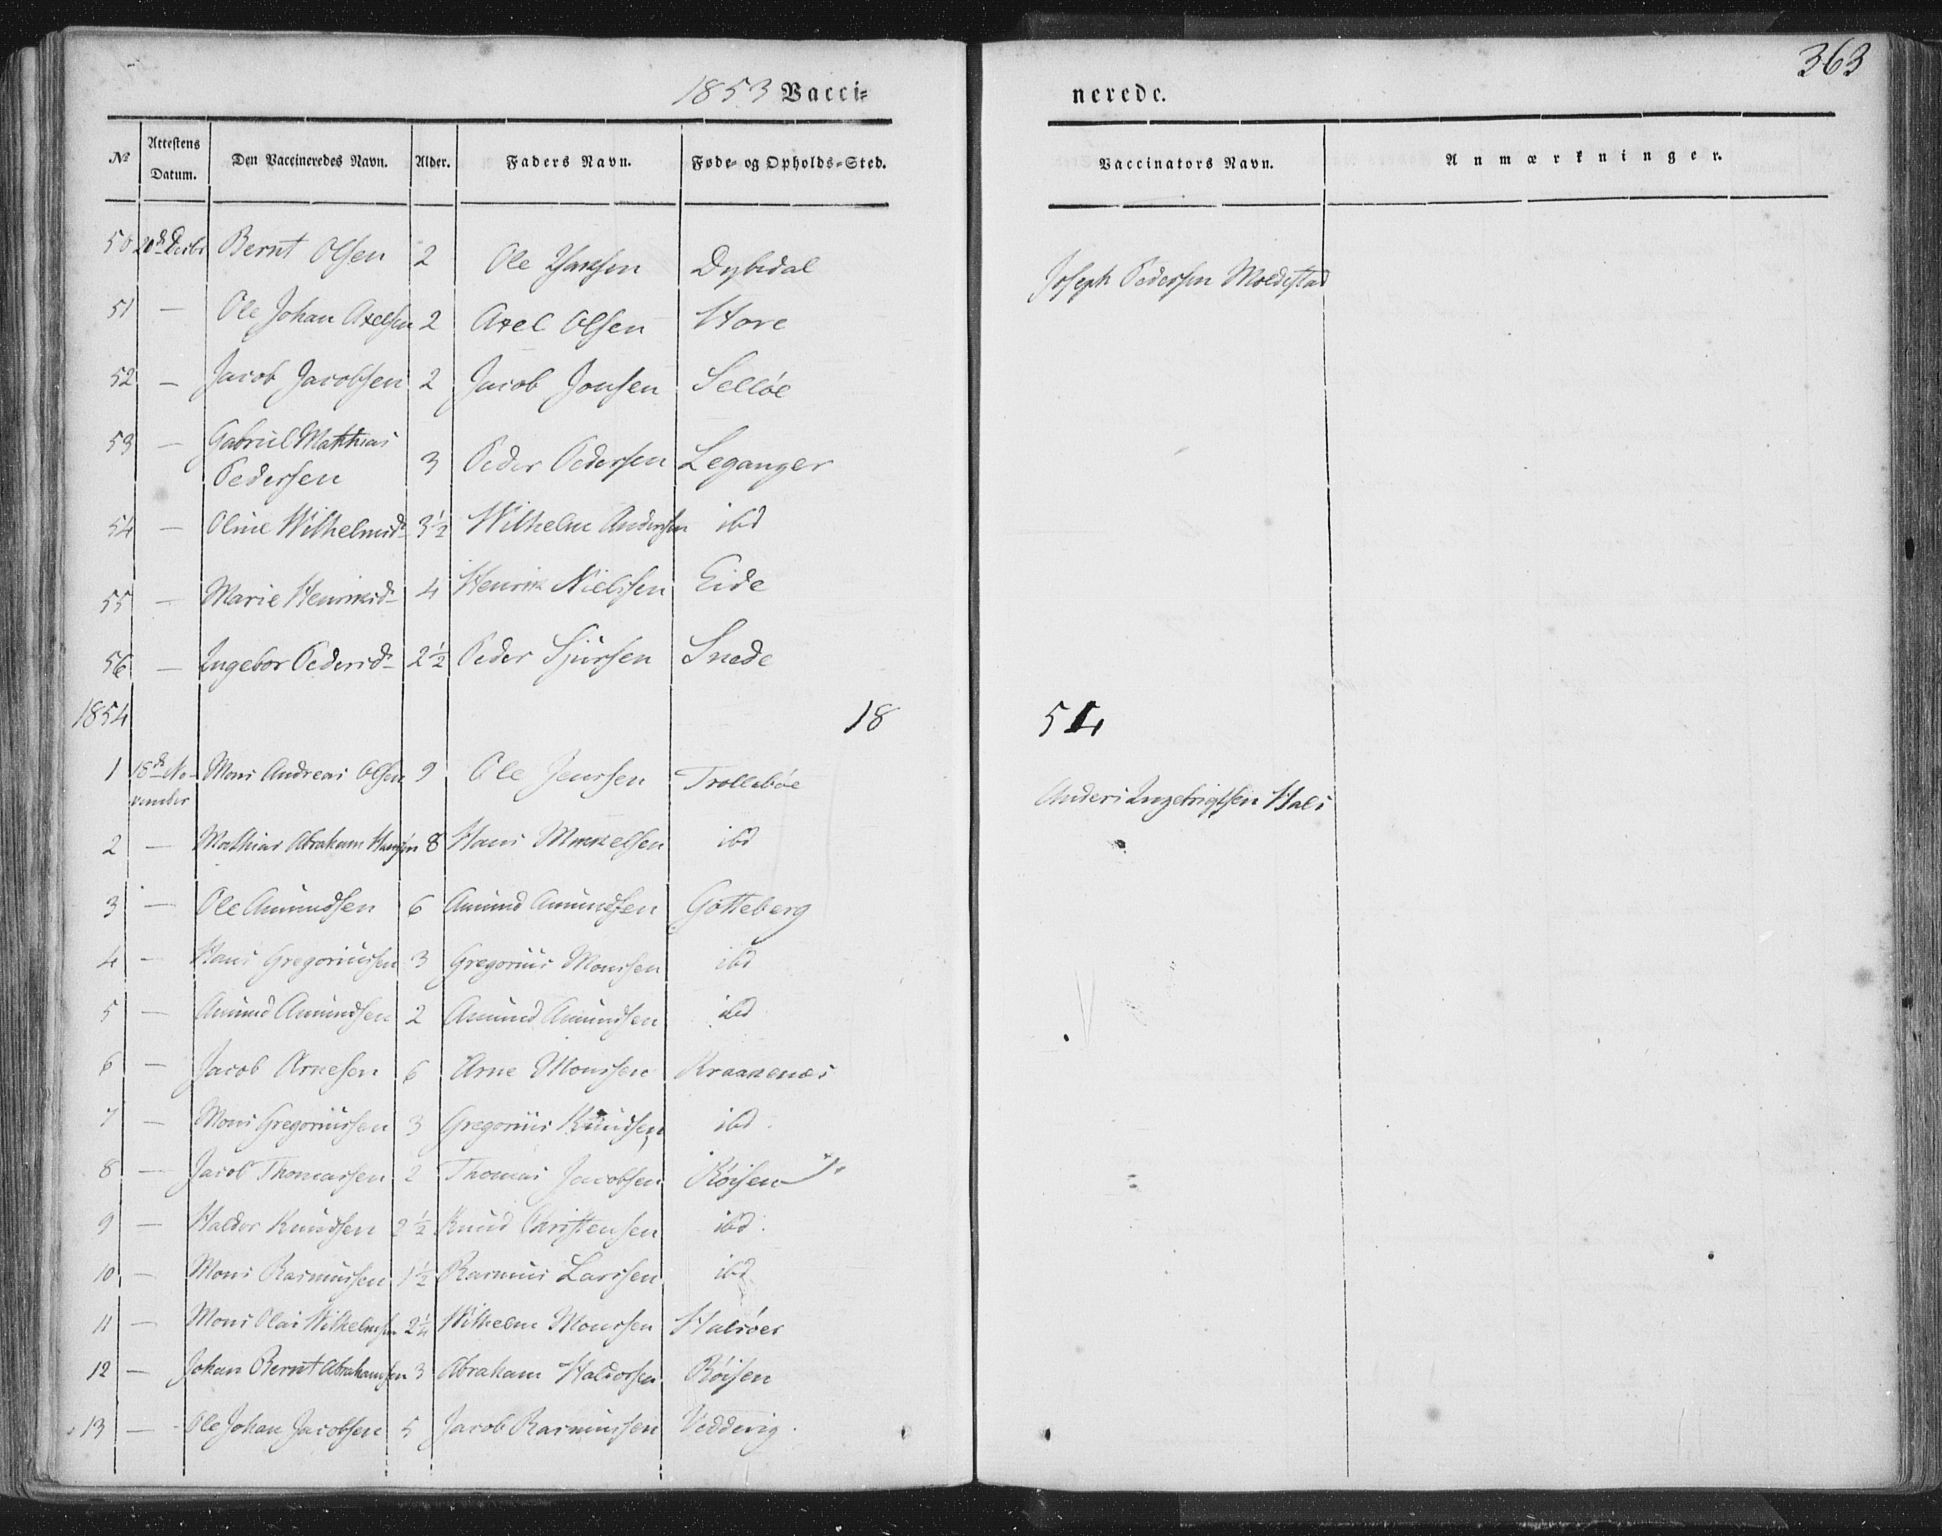 363
1853 Vacci-
nerede.
No Attestens Datum. Den Vaccineredes Navn. Alder. Faders Navn. Føde- og Opholds-Sted. Vaccinators Navn. Anmærkninger.
50 Bernt Olsen 2 Ole Dybedal Joseph Pedersen Moldestad
51 — Ole Johan Axelsen 2 Axel Olsen Hove
52 — Jacob Jacobsen 2 Jacob Jonsen Selløe
53 — Gabriel Matthias
Pedersen 3 Peder Pedersen Leganger
54 — Oline Wilhelmsd 3½ Wilhelm Andersen ibd
55 — Marie Henriksd 4 Henrik Nielssen Eide
56 — Ingebor Pedersd 2½ Peder Sjursen Snede
1854
18 54
1 18de No- Mons Andreas Olsen 9 Ole Jenssen Trollebøe
vember Anders Ingebrigtsen Hals
2 — Mathias Abraham Hansen 8 Hans Mikkelsen ibd
3 — Ole Amundsen 6 Amund Amundsen Gotteberg
4 — Hans Gregoriussen 3 Gregorius Monssen ibd
5 — Amund Amundsen 2 Amund Amundsen ibd
6 — Jacob Arnesen 6 Arne Monssen Kraakenæs
7 — Mons Gregoriussen 3 Gregorius Knudsen ibd.
8 — Jacob Thomassen 2 Thomas Jacobsen Røisen
9 — Haldor Knudsen 2½ Knud Christensen ibd.
10 — Mons Rasmussen 1½ Rasmus Larssen ibd
11 — Mons Olai Wilhelmsen 2¼ Wilhelm Monssen Halsøer
12 — Johan Bernt Abrahamsen 3 Abraham Haldorsen Røisen
13 — Ole Johan Jacobsen 5 Jacob Rasmussen Vedvig